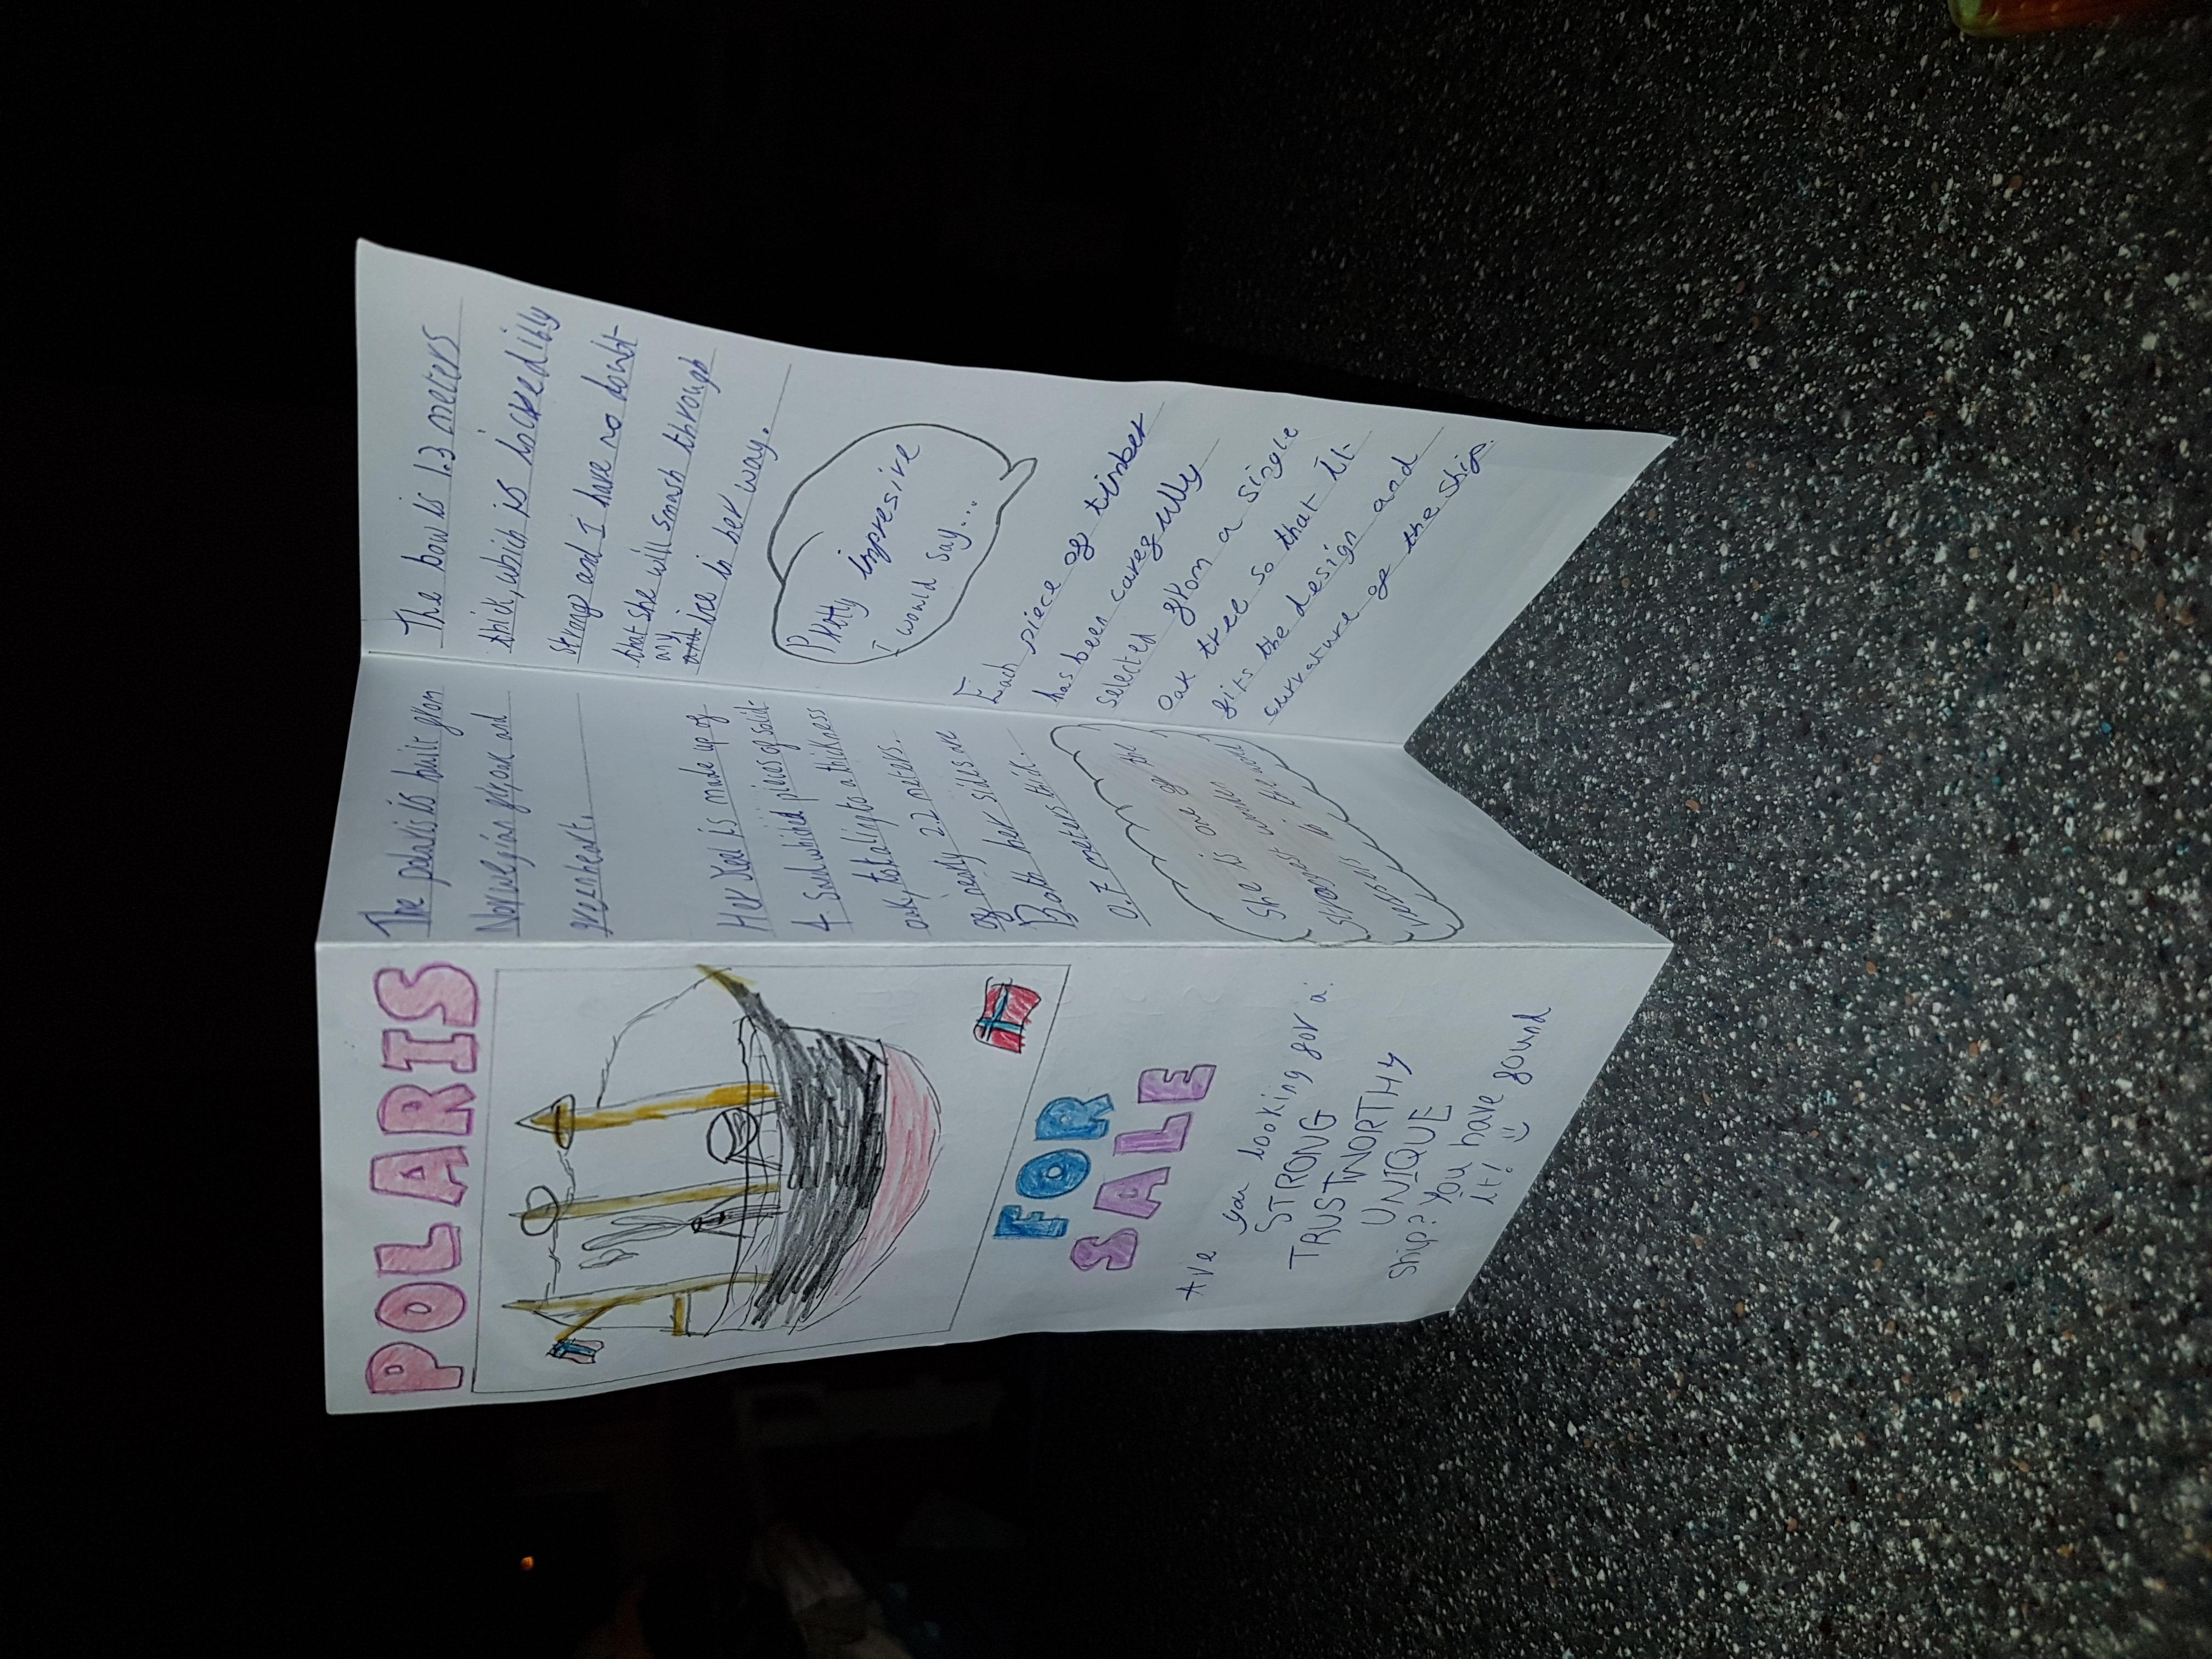 POLARIS
FOR
SALE
Are you looking for a:
STRONG
TRUSTWORTHY
UNIQUE
ship? You have found
it!
The polaris is built from
Norwegian fir, oak and
greenheart.
Her keel is made up of
4 sandwhiched pieces of solid
oak, totaling to a thickness
of nearly 2.2 meters.
Both her sides are
0.7 meters thick.
She is one of the
strongest wooden
vessels in the world
The bow is 1.3 meters
thick, which is incredibly
strong and I have no doubt
that she will smash through
any
ice in her way.
Pretty impresive
I would say...
Each piece of timber
has been carefully
selected from a single
oak tree so that it
fits the design and
curvature of the ship.